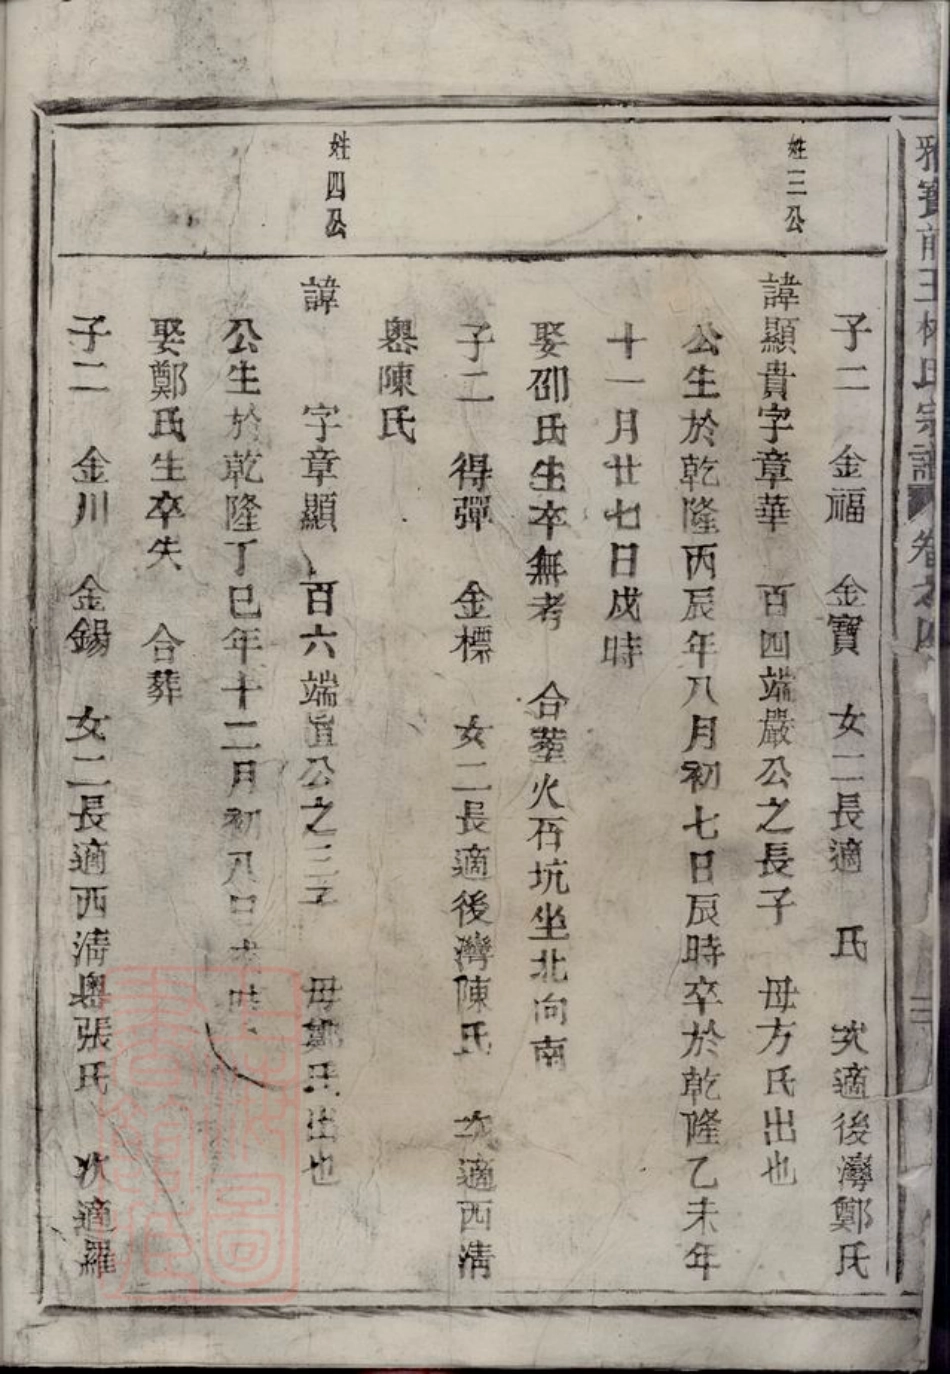 王林氏宗譜 卷之四
子二 金福 金寶 女二長適 氏 次適後灣鄭氏
姓三公
諱顯貴字章華 百四端嚴公之長子 母方氏出也
公生於乾隆丙辰年八月初七日辰時卒於乾隆乙未年
十一月廿七日戌時
娶邵氏生卒無考 合塟火石坑坐北向南
子二 得彈 金標 女二長適後灣陳氏 次適西淸
嶴陳氏
姓四公
諱 字章顯 百六端公之三子 母鄭氏出也
公生於乾隆丁巳年十二月初八日
娶鄭氏生卒失 合葬
子二 金川 金錫 女二長適西淸嶴張氏 次適羅